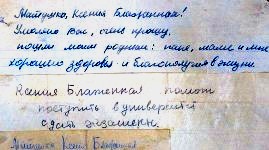 Матушка, Ксения Блаженная!
Умоляю Вас, очень прошу,
пошли моим родным: папе, маме и мне
хорошего здоровья и благополучия в жизни
Ксения Блаженная помоги
поступить в университет
сдать экзамены.
Матушка Ксения Блаженная